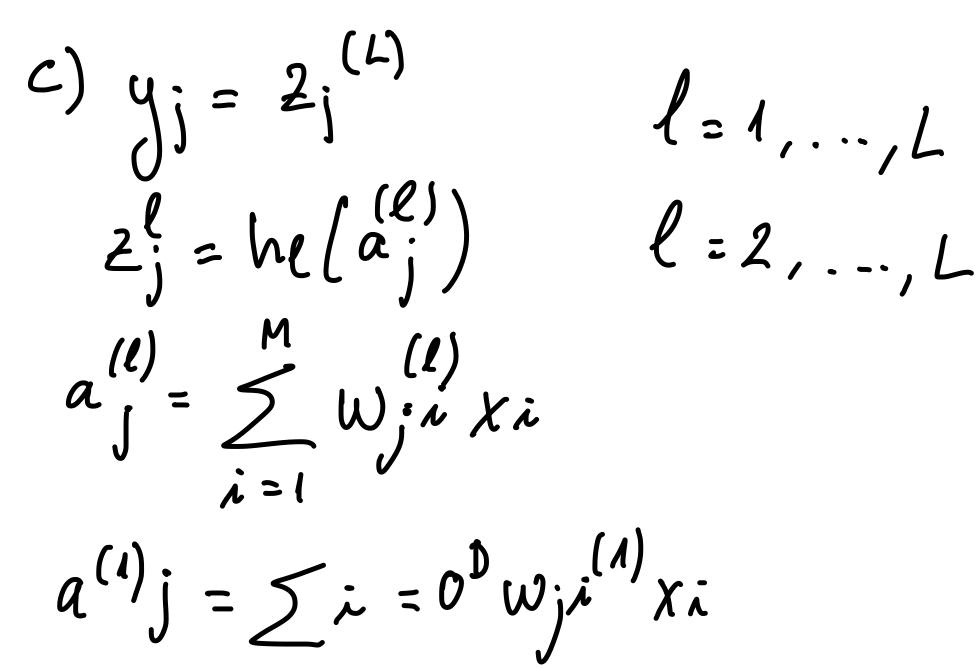 c) y_j = z_j^{(L)}
l = 1, ..., L
z_j^l = h_l(a_j^{(l)})
l = 2, ..., L
a_j^{(l)} = \sum_{i=1}^{M} w_{ji}^{(l)} x_i
a^{(1)}j = \sum i = 0^D w_{ji}^{(1)} x_i